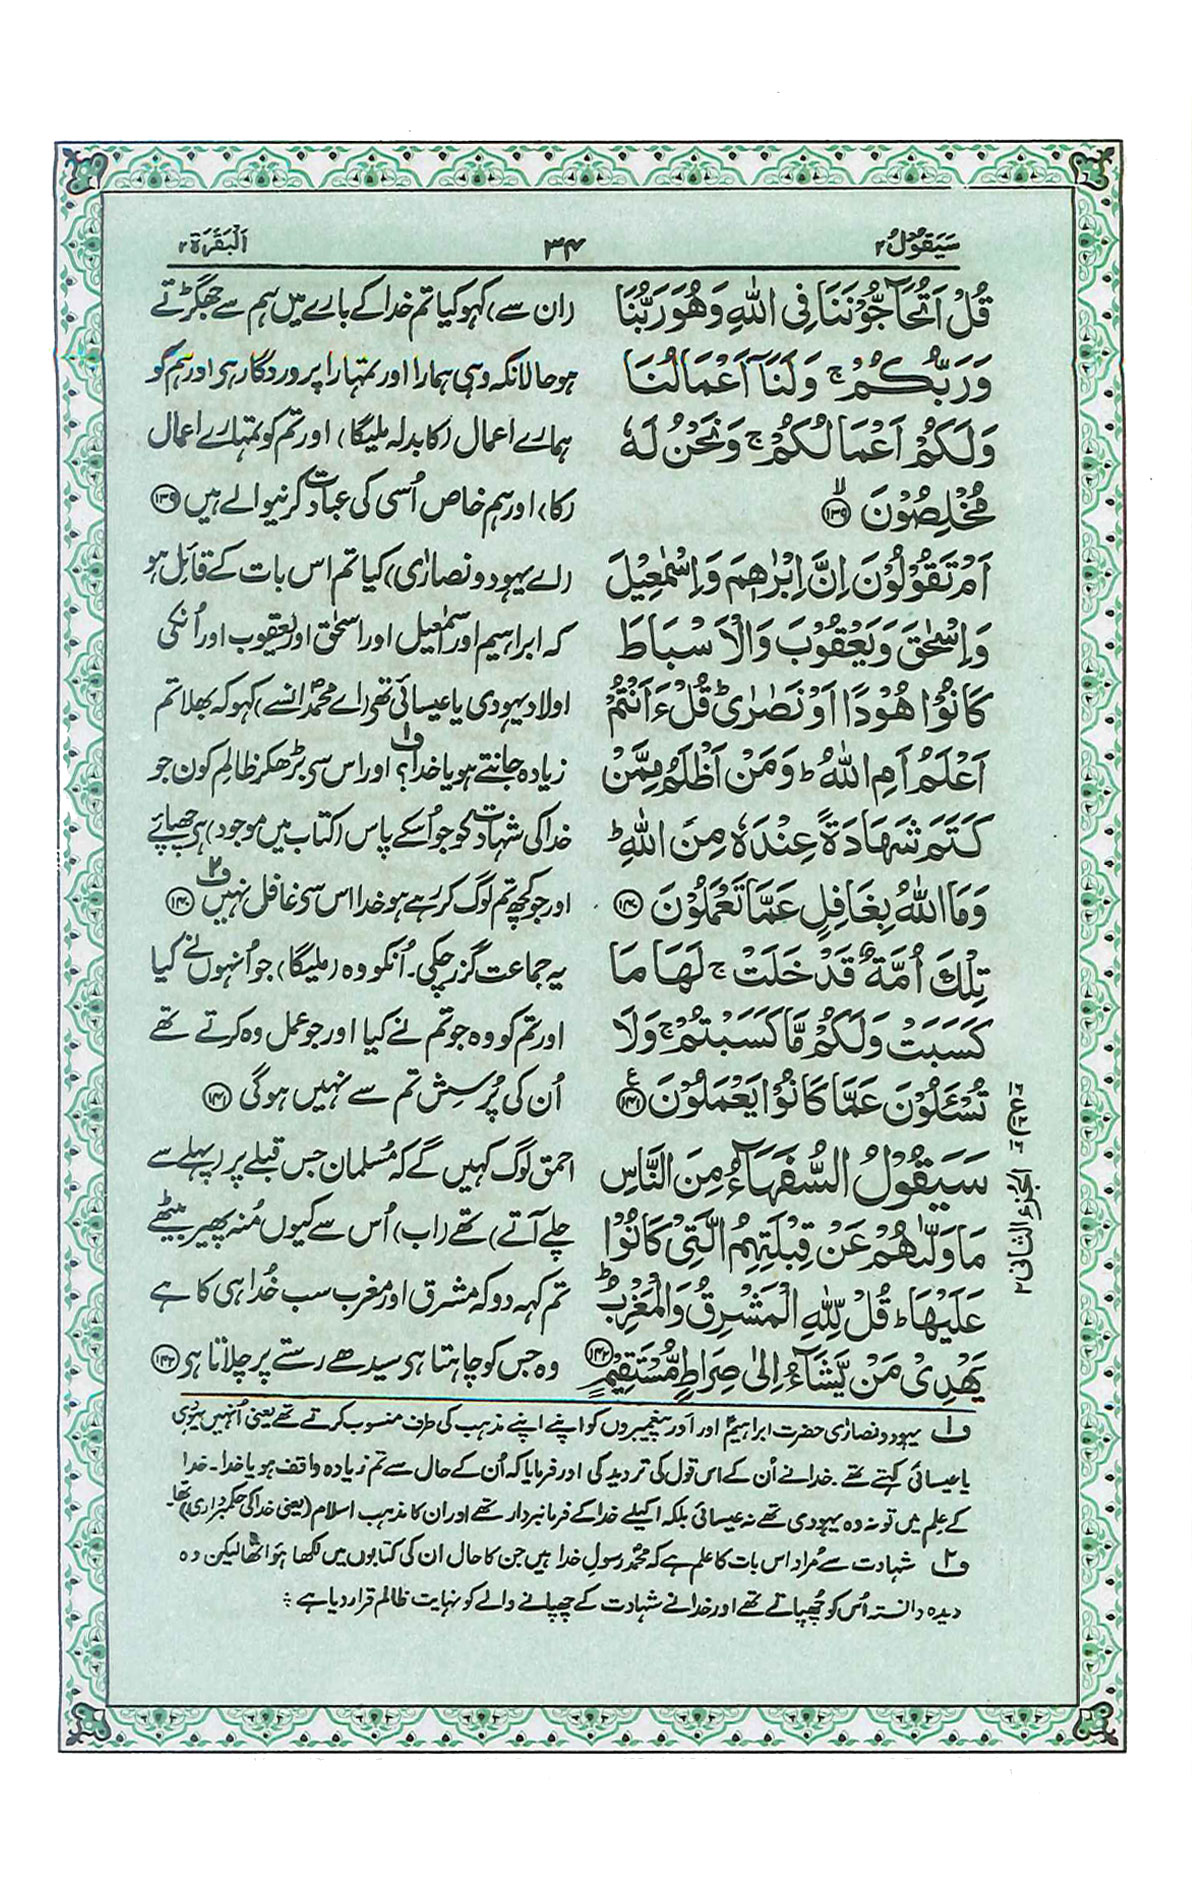 سَيَقُوْلُ ٢
٣٤
اَلْبَقَرَة ٢
قُلْ اَتُحَآجُّوْنَنَا فِى اللّٰهِ وَهُوَ رَبُّنَا
وَرَبُّكُمْ ۚ وَلَنَآ اَعْمَالُنَا
وَلَكُمْ اَعْمَالُكُمْ ۚ وَنَحْنُ لَهٗ
مُخْلِصُوْنَ ۙ ﴿١٣٩﴾
اَمْ تَقُوْلُوْنَ اِنَّ اِبْرٰهٖمَ وَاِسْمٰعِيْلَ
وَاِسْحٰقَ وَيَعْقُوْبَ وَالْاَسْبَاطَ
كَانُوْا هُوْدًا اَوْ نَصٰرٰى ؕ قُلْ ءَاَنْتُمْ
اَعْلَمُ اَمِ اللّٰهُ ؕ وَمَنْ اَظْلَمُ مِمَّنْ
كَتَمَ شَهَادَةً عِنْدَهٗ مِنَ اللّٰهِ ؕ
وَمَا اللّٰهُ بِغَافِلٍ عَمَّا تَعْمَلُوْنَ ﴿١٤٠﴾
تِلْكَ اُمَّةٌ قَدْ خَلَتْ ۚ لَهَا مَا
كَسَبَتْ وَلَكُمْ مَّا كَسَبْتُمْ ۚ وَلَا
تُسْـَٔلُوْنَ عَمَّا كَانُوْا يَعْمَلُوْنَ ﴿١٤١﴾
سَيَقُوْلُ السُّفَهَآءُ مِنَ النَّاسِ
مَا وَلّٰىهُمْ عَنْ قِبْلَتِهِمُ الَّتِىْ كَانُوْا
عَلَيْهَا ؕ قُلْ لِّلّٰهِ الْمَشْرِقُ وَالْمَغْرِبُ ؕ
يَهْدِىْ مَنْ يَّشَآءُ اِلٰى صِرَاطٍ مُّسْتَقِيْمٍ ﴿١٤٢﴾
(ان سے) کہو کیا تم خدا کے بارے میں ہم سے جھگڑتے
ہو حالانکہ وہی ہمارا اور تمہارا پروردگار ہی اور ہم کو
ہمارے اعمال (کا بدلہ ملیگا) اور تم کو تمہارے اعمال
(کا) اور ہم خاص اُسی کی عبادت کرنیوالے ہیں ﴿١٣٩﴾
(اے یہود و نصاریٰ) کیا تم اس بات کے قائل ہو
کہ ابراہیم اور اسمٰعیل اور اسحٰق اور یعقوب اور اُنکی
اولاد یہودی یا عیسائی تھی (اے محمدؐ انسے) کہو کہ بھلا تم
زیادہ جانتے ہو یا خدا؟ ف۱ اور اس سی بڑھکر ظالم کون جو
خدا کی شہادت کو جو اُسکے پاس (کتاب میں موجود) ہی چھپائے
اور جو کچھ تم لوگ کر رہے ہو خدا اس سی غافل نہیں ف۲ ﴿١٤٠﴾
یہ جماعت گزر چکی۔ اُنکو وہ (ملیگا) جو اُنہوں نے کیا
اور تم کو وہ جو تم نے کیا اور جو عمل وہ کرتے تھے
اُن کی پُرسِش تم سے نہیں ہوگی ﴿١٤١﴾
احمق لوگ کہیں گے کہ مُسلمان جس قبلے پر (پہلے سے
چلے آتے) تھے (اب) اُس سے کیوں مُنہ پھیر بیٹھے
تم کہہ دو کہ مشرق اور مغرب سب خُدا ہی کا ہے
وہ جس کو چاہتا ہی سیدھے رستے پر چلاتا ہی ﴿١٤٢﴾
الجزء الثانی ۲
ف۱ یہود و نصاریٰ حضرت ابراہیمؑ اور اَور پیغمبروں کو اپنے اپنے مذہب کی طرف منسوب کرتے تھے یعنی اُنہیں یہودی
یا عیسائی کہتے تھے۔ خدا نے اُن کے اس قول کی تردید کی اور فرمایا کہ اُن کے حال سے تم زیادہ واقف ہو یا خدا۔ خدا
کے علم میں تو نہ وہ یہودی تھے نہ عیسائی بلکہ اکیلے خدا کے فرمانبردار تھے اور ان کا مذہب اسلام (یعنی خدا کی حکمبرداری) تھا۔
ف۲ شہادت سے مُراد اس بات کا علم ہے کہ محمدؐ رسولِ خدا ہیں جن کا حال ان کی کتابوں میں لکھا ہوا تھا لیکن وہ
دیدہ دانستہ اُس کو چھپاتے تھے اور خدا نے شہادت کے چھپانے والے کو نہایت ظالم قرار دیا ہے